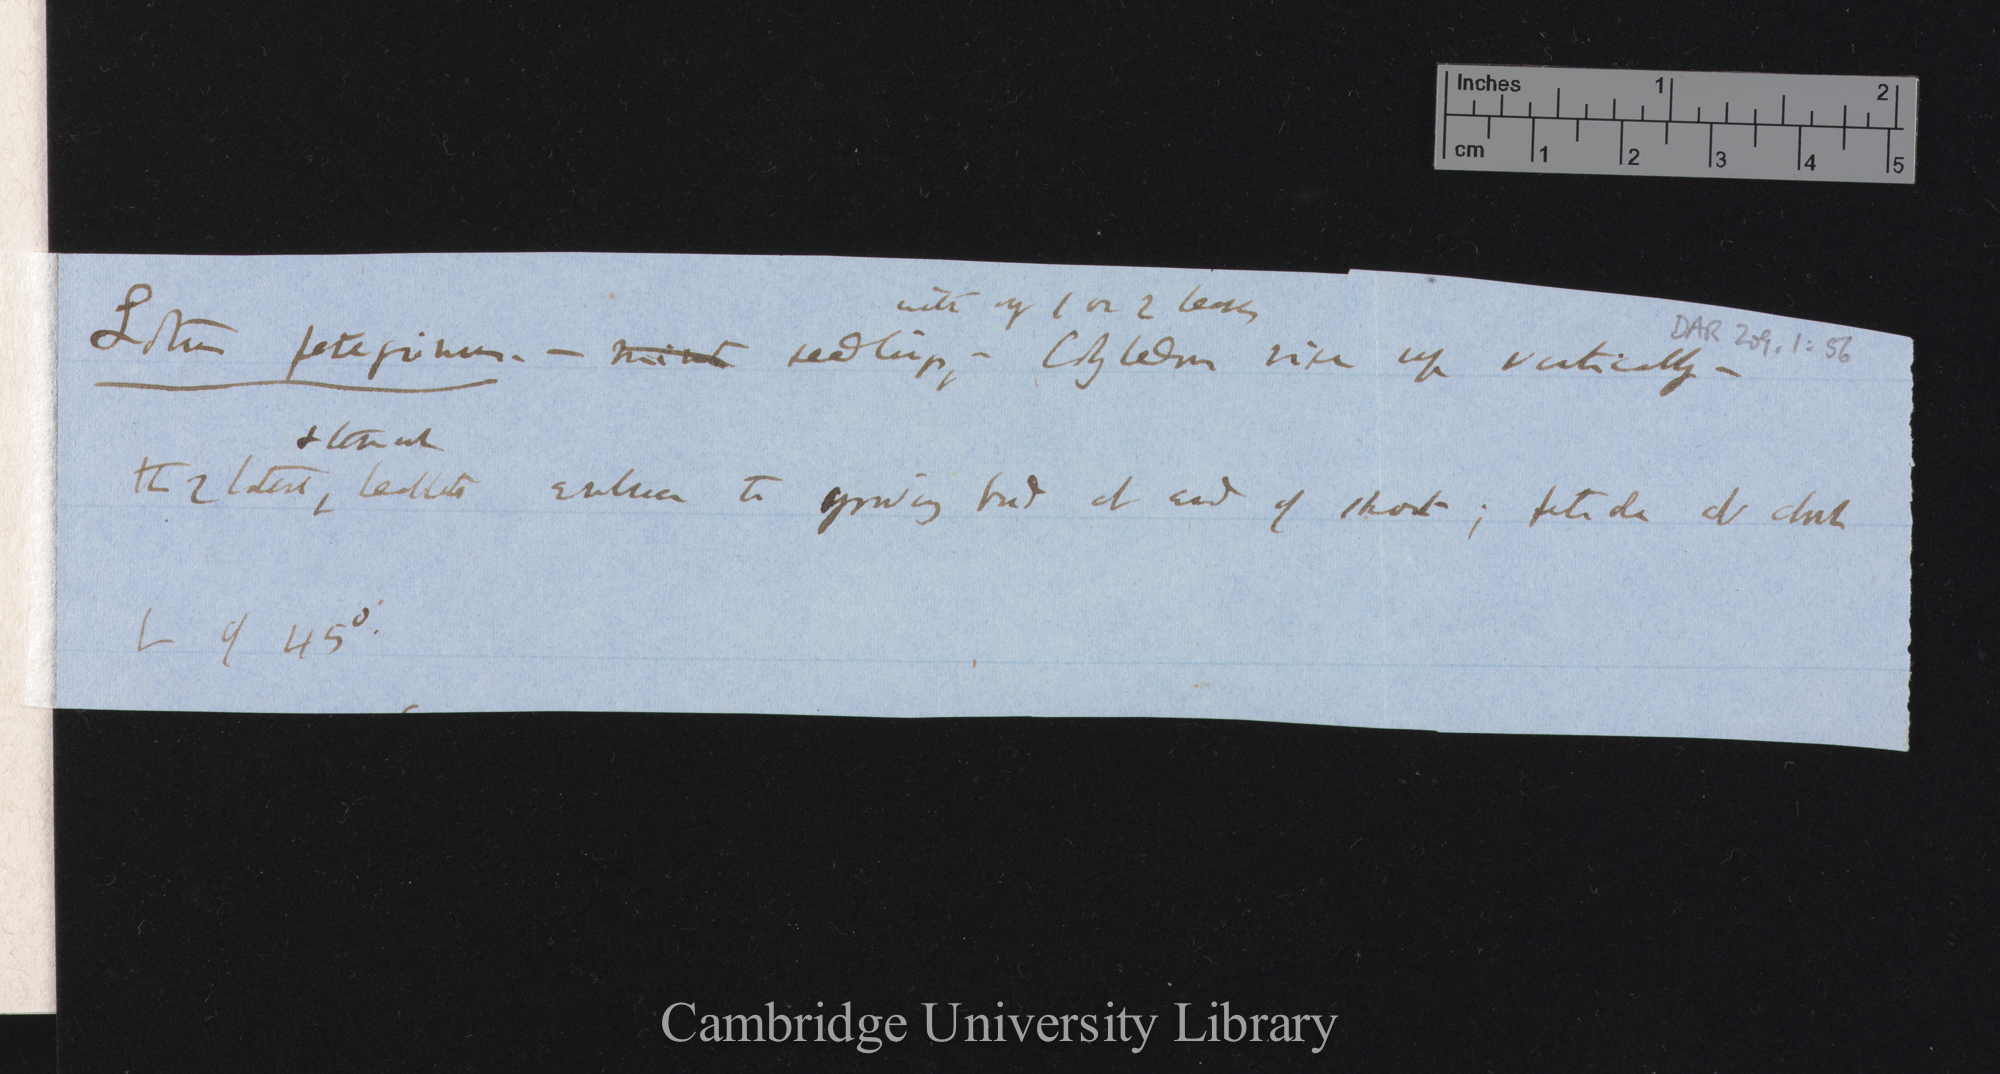 Inches 1 2
cm 1 2 3 4 5
with only 1 or 2 leaves
DAR 209.1:56
Lotus peregrinus. — mint seedling, – Cotyledons rise up vertically –
& terminal
the 2 lateral, leaflets enclose the growing bud at end of shoot; petiole at dusk
L of 45°.
Cambridge University Library